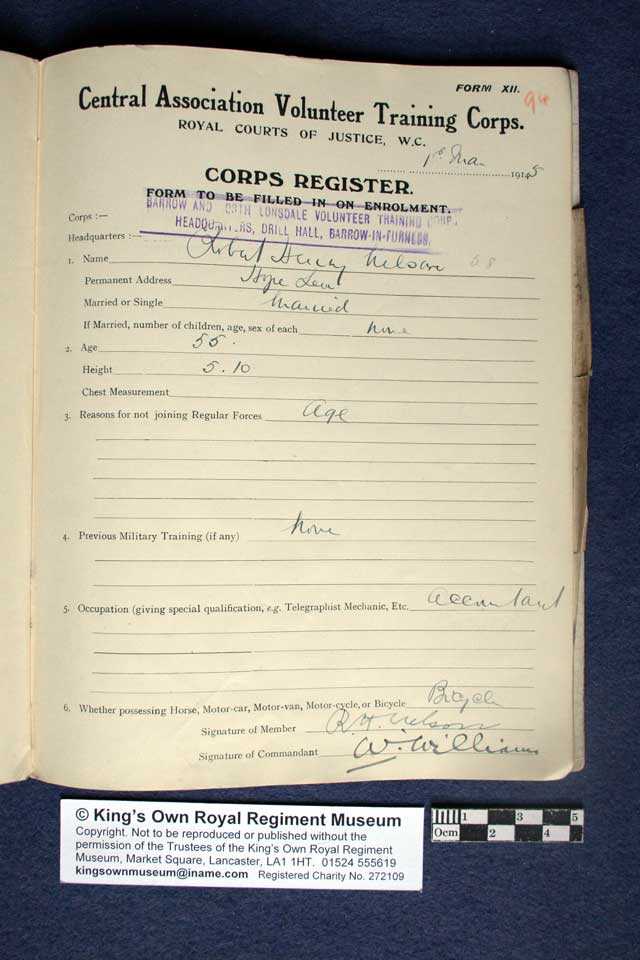 FORM XII.
94
Central Association Volunteer Training Corps.
ROYAL COURTS OF JUSTICE, W.C.
1st Mar 1915
CORPS REGISTER.
FORM TO BE FILLED IN ON ENROLMENT.
Corps :— BARROW AND NORTH LONSDALE VOLUNTEER TRAINING CORPS
Headquarters :— HEADQUARTERS, DRILL HALL, BARROW-IN-FURNESS.
1. Name Robert Henry Nelson 58
Permanent Address Hope
Married or Single Married
If Married, number of children, age, sex of each none
2. Age 55.
Height 5.10
Chest Measurement
3. Reasons for not joining Regular Forces Age
4. Previous Military Training (if any) None
5. Occupation (giving special qualification, e.g. Telegraphist Mechanic, Etc. Accountant
6. Whether possessing Horse, Motor-car, Motor-van, Motor-cycle, or Bicycle Bicycle
Signature of Member R.H. Nelson
Signature of Commandant W. Williams
© King's Own Royal Regiment Museum
Copyright. Not to be reproduced or published without the
permission of the Trustees of the King's Own Royal Regiment
Museum, Market Square, Lancaster, LA1 1HT. 01524 555619
kingsownmuseum@iname.com Registered Charity No. 272109
1 3 5
0cm 2 4